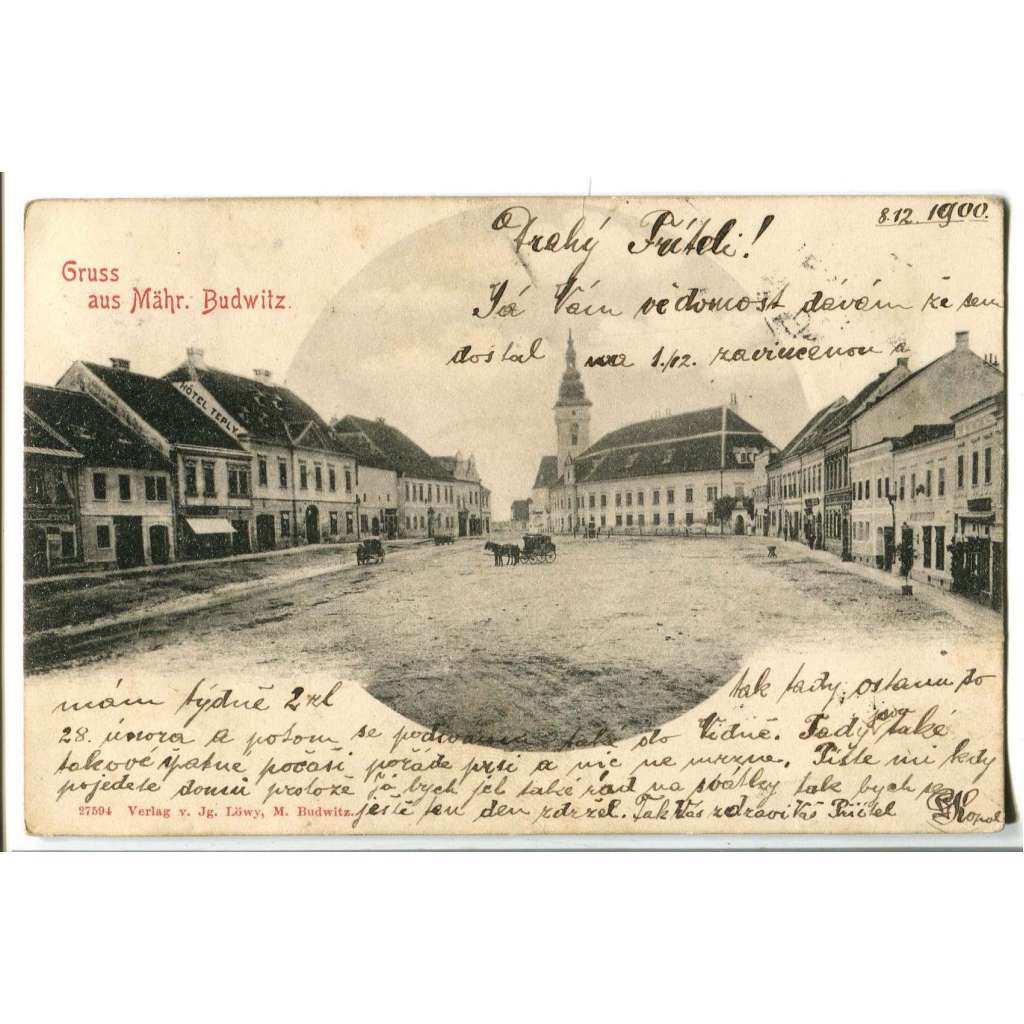 8.12. 1900.
Drahý Příteli!
Gruss
aus Mähr. Budwitz.
Já Vám vědomost dávám že sem
dostal na 1./12. zavincenou a
HÔTEL TEPLY
mám týdně 2 zl tak tady ostanu do
28. února a potom se podívám tak do Vídně. Tady jsou také
takové špatné počasí pořáde prší a nic ne mrzne. Pište mi kdy
pojedete domů protože já bych jel také rád na svátky tak bych se
ještě ten den zdržel. Tak Vás zdraví Váš Přítel
27594 Verlag v. Jg. Löwy, M. Budwitz.